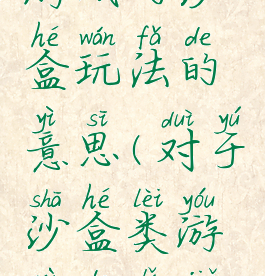 hé wán fǎ de
盒玩法的
yì sī duì yú
意思(对于
shā hé lèi yóu
沙盒类游